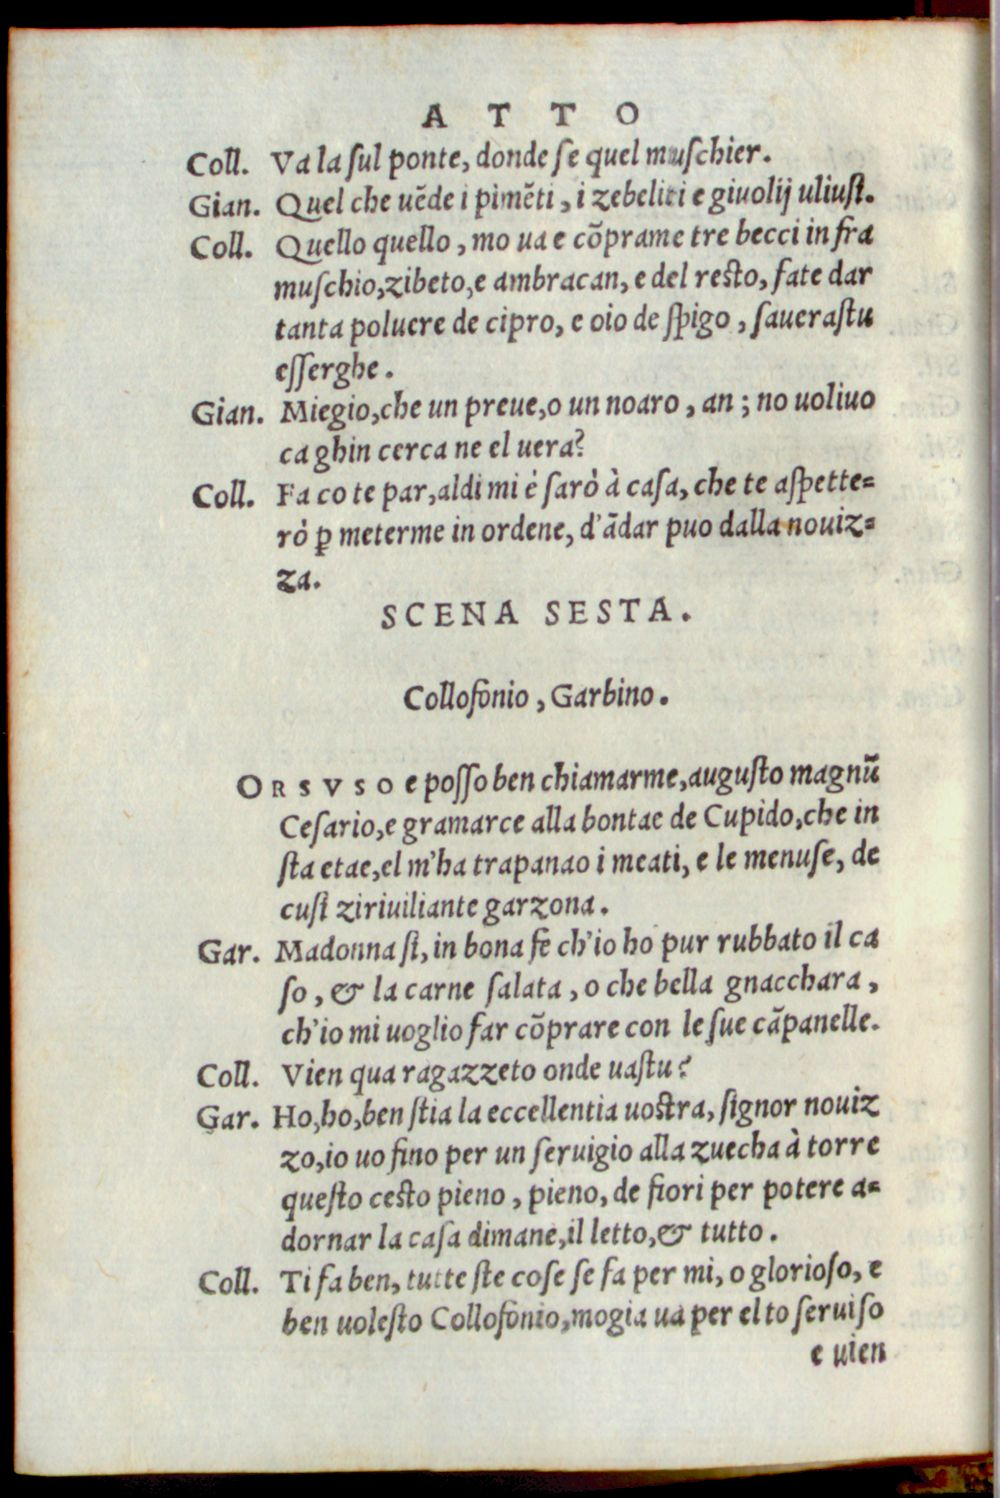 ATTO
Coll. Va la sul ponte, donde se quel muschier.
Gian. Quel che uẽde i pimẽti, i zebeliti e giuolij uliust.
Coll. Quello quello, mo ua e cõprame tre becci infra
muschio, zibeto, e ambracan, e del resto, fate dar
tanta poluere de cipro, e oio de spigo, sauerastu
esserghe.
Gian. Miegio, che un preue, o un noaro, an; no uoliuo
ca ghin cerca ne el uera?
Coll. Fa co te par, aldi mi è sarò à casa, che te aspette=
rò ꝑ meterme in ordene, d'ãdar puo dalla nouiz=
za.
SCENA SESTA.
Collofonio, Garbino.
ORSVSO e posso ben chiamarme, augusto magnũ
Cesario, e gramarce alla bontae de Cupido, che in
sta etae, el m'ha trapanao i meati, e le menuse, de
cusi ziriuiliante garzona.
Gar. Madonna si, in bona fe ch'io ho pur rubbato il ca
so, & la carne salata, o che bella gnacchara,
ch'io mi uoglio far cõprare con le sue cãpanelle.
Coll. Vien qua ragazzeto onde uastu?
Gar. Ho, ho, ben stia la eccellentia uostra, signor nouiz
zo, io uo fino per un seruigio alla zuecha à torre
questo cesto pieno, pieno, de fiori per potere a=
dornar la casa dimane, il letto, & tutto.
Coll. Ti fa ben, tutte ste cose se fa per mi, o glorioso, e
ben uolesto Collofonio, mogia ua per el to seruiso
e uien